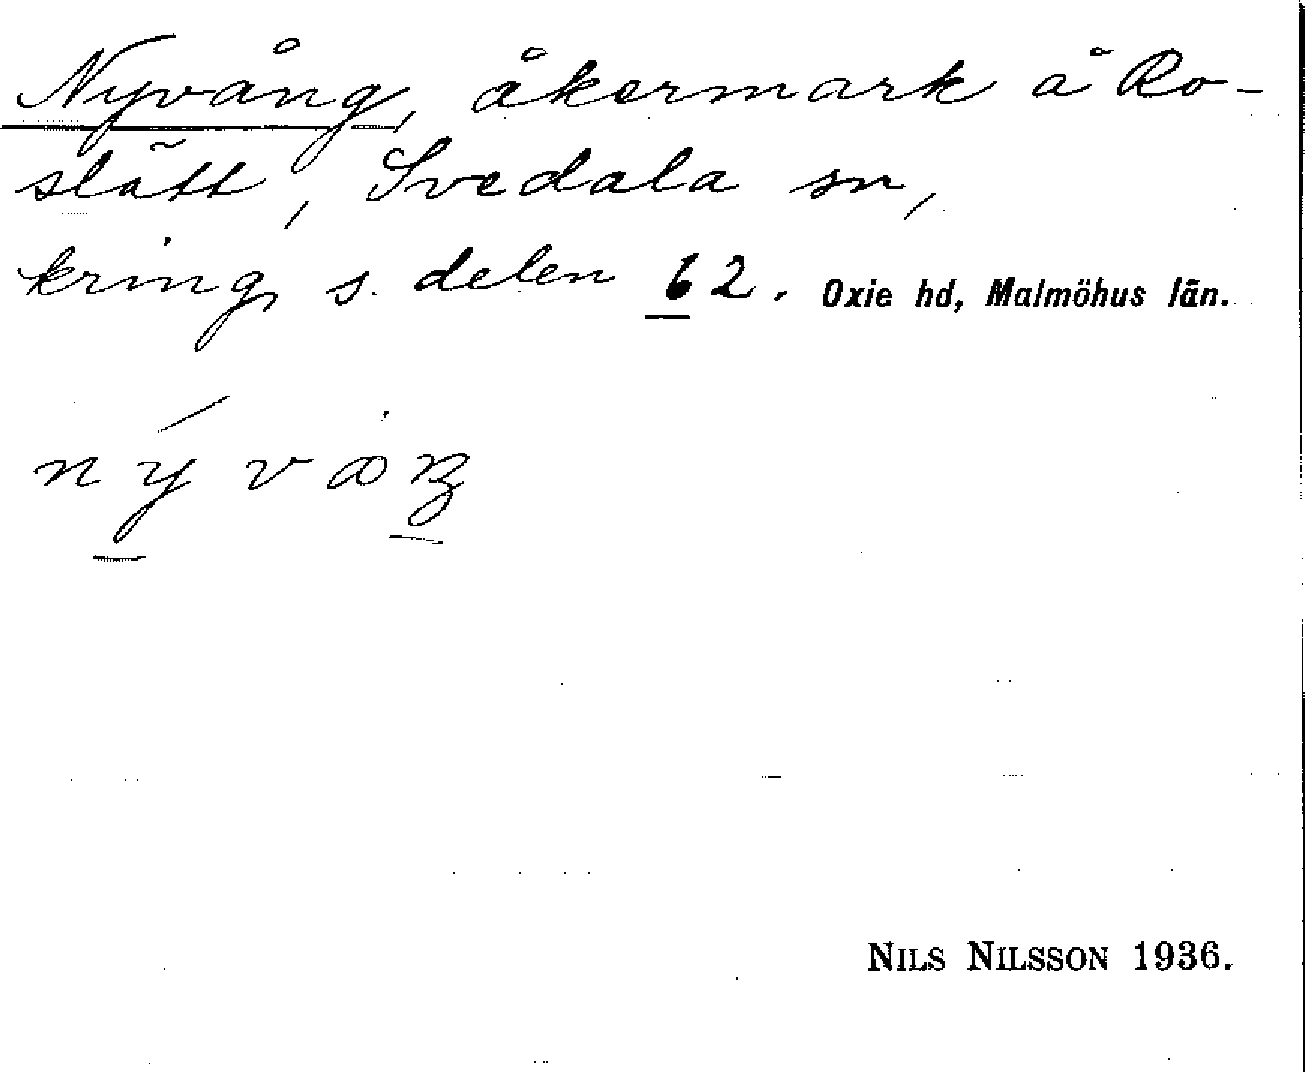 Nyvång, åkermark å Ro-
slätt, Svedala sn,
kring s. delen 62. Oxie hd, Malmöhus län.
NILS NILSSON 1936.